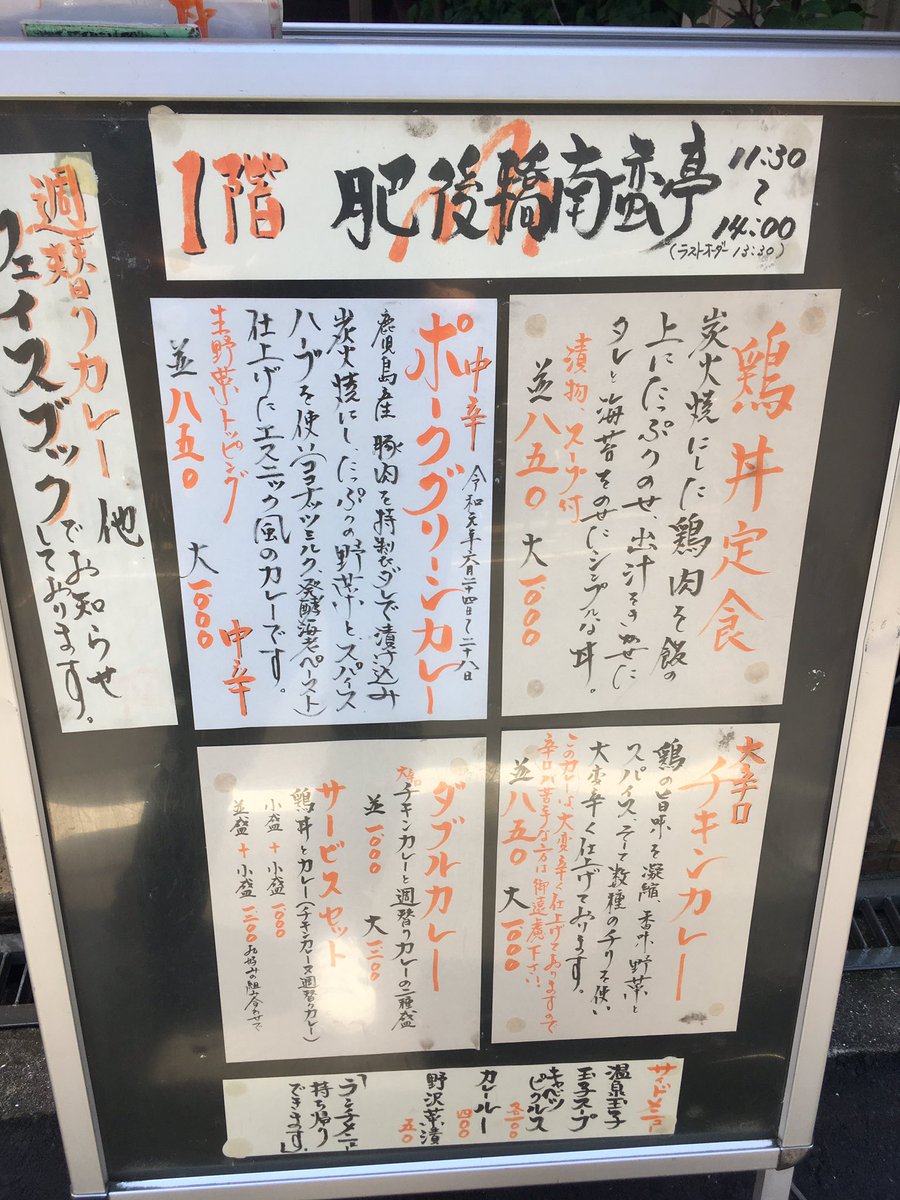 1階 肥後橋南蛮亭 11:30〜14:00
(ラストオーダー13:30)
週替りカレー他
フェイスブックでお知らせ
しております。
鶏丼定食
炭火焼にした鶏肉を飯の
上にたっぷりのせ、出汁をきかせた
タレと海苔をのせたシンプルな丼。
漬物、スープ付
並 八五〇 大 一〇〇〇
ポークグリーンカレー
中辛 令和元年六月二十四日〜二十八日
鹿児島産豚肉を特製ダレで漬け込み
炭火焼にし、たっぷりの野菜と、スパイス
ハーブを使い(ココナッツミルク、発酵海老ペースト)
仕上げにエスニック風のカレーです。
生野菜トッピング 中辛
並 八五〇 大 一〇〇〇
大辛口
チキンカレー
鶏の旨味を凝縮、香味野菜と
スパイス、そして数種のチリを使い
大変辛く仕上げております。
このカレーは大変辛く仕上げてありますので
辛口が苦手な方は御遠慮下さい!
並 八五〇 大 一〇〇〇
ダブルカレー
大辛口チキンカレーと週替りカレーの二種盛
並 一〇〇〇 大 一三〇〇
サービスセット
鶏丼とカレー(チキンカレー又週替りカレー)
小盛+小盛 一〇〇〇
並盛+小盛 一二〇〇 お好みの組み合わせで
サイドメニュー
温泉玉子
玉子スープ
キャベツ
ピクルス 各一〇〇
カレールー 四〇〇
野沢菜漬 五〇
「ランチメニュー
持ち帰り
できます」